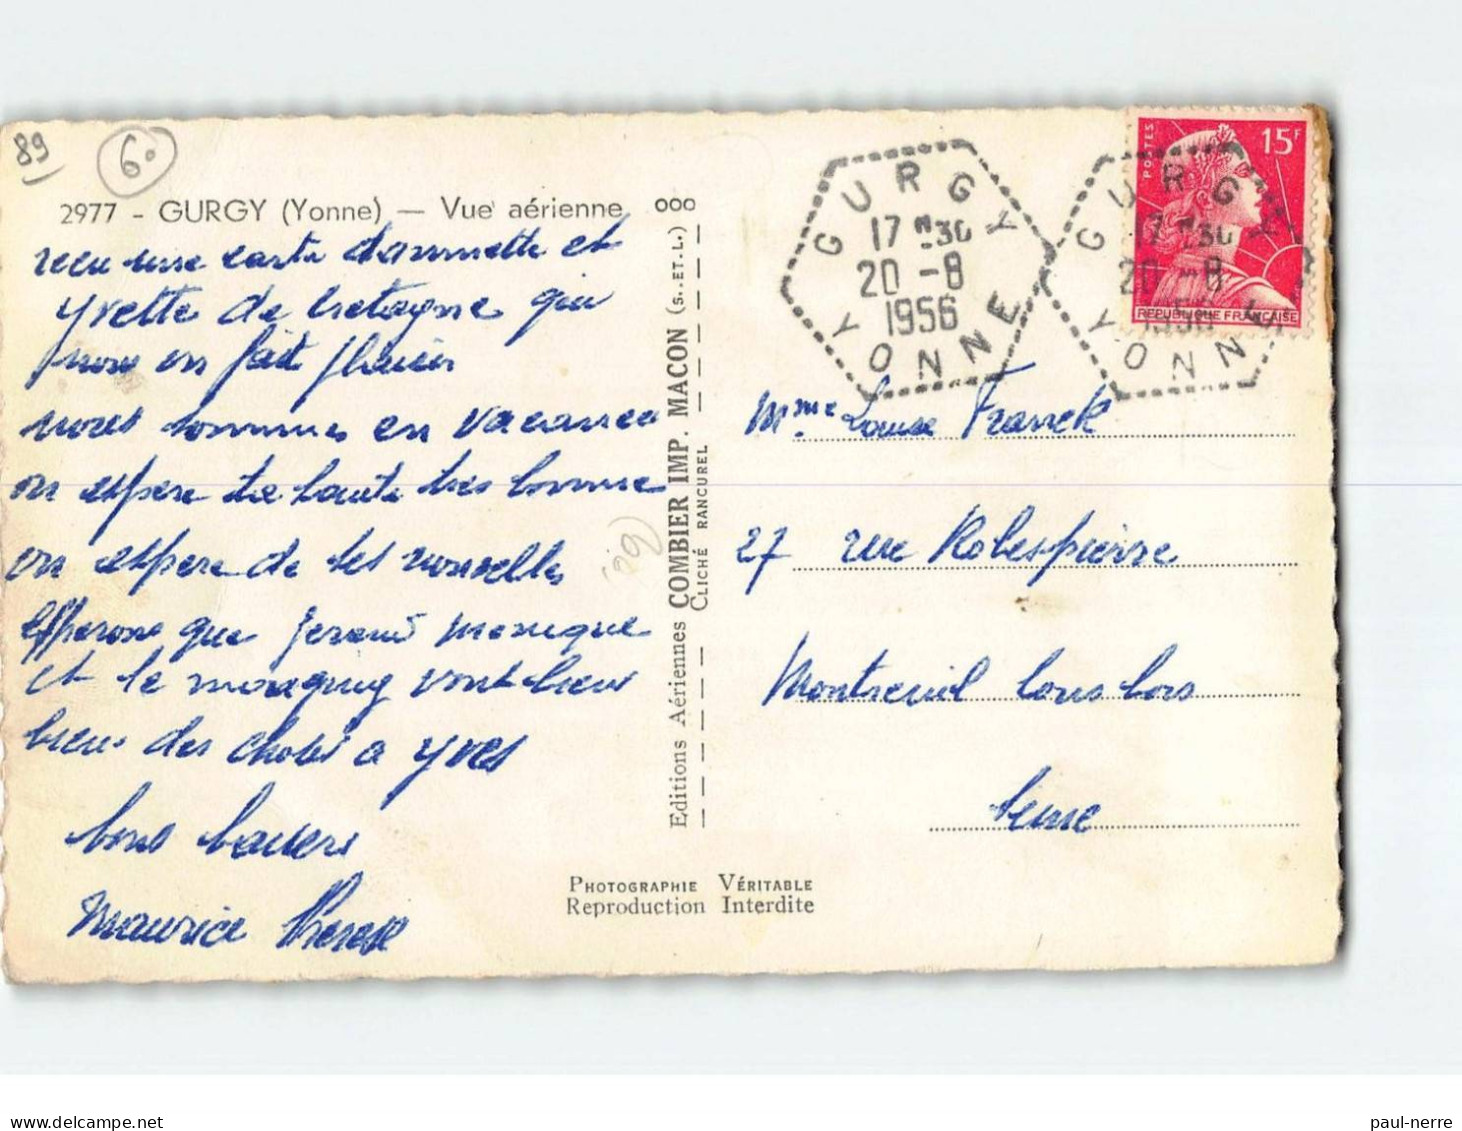 89
60
2977 - GURGY (Yonne) — Vue aérienne ooo
recu une carte d'annette et
yvette de bretagne qui
nous en fait plaisir
nous sommes en vacances
on espere ta santé tres bonne
on espere de tes nouvelles
esperons que monique
et le vont bien
bien des choses a yves
bons baisers
Maurice therese
Editions Aériennes COMBIER IMP. MACON (S.-ET-L.)
CLICHÉ RANCUREL
PHOTOGRAPHIE VÉRITABLE
Reproduction Interdite
GURGY
17 H 30
20 -8
1956
YONNE
GURGY
17 H 30
20 -8
1956
YONNE
POSTES
15F
REPUBLIQUE FRANÇAISE
Mme Louise Franck
27 rue Robespierre
Montreuil sous bois
seine
delcampe.net
paul-nerre